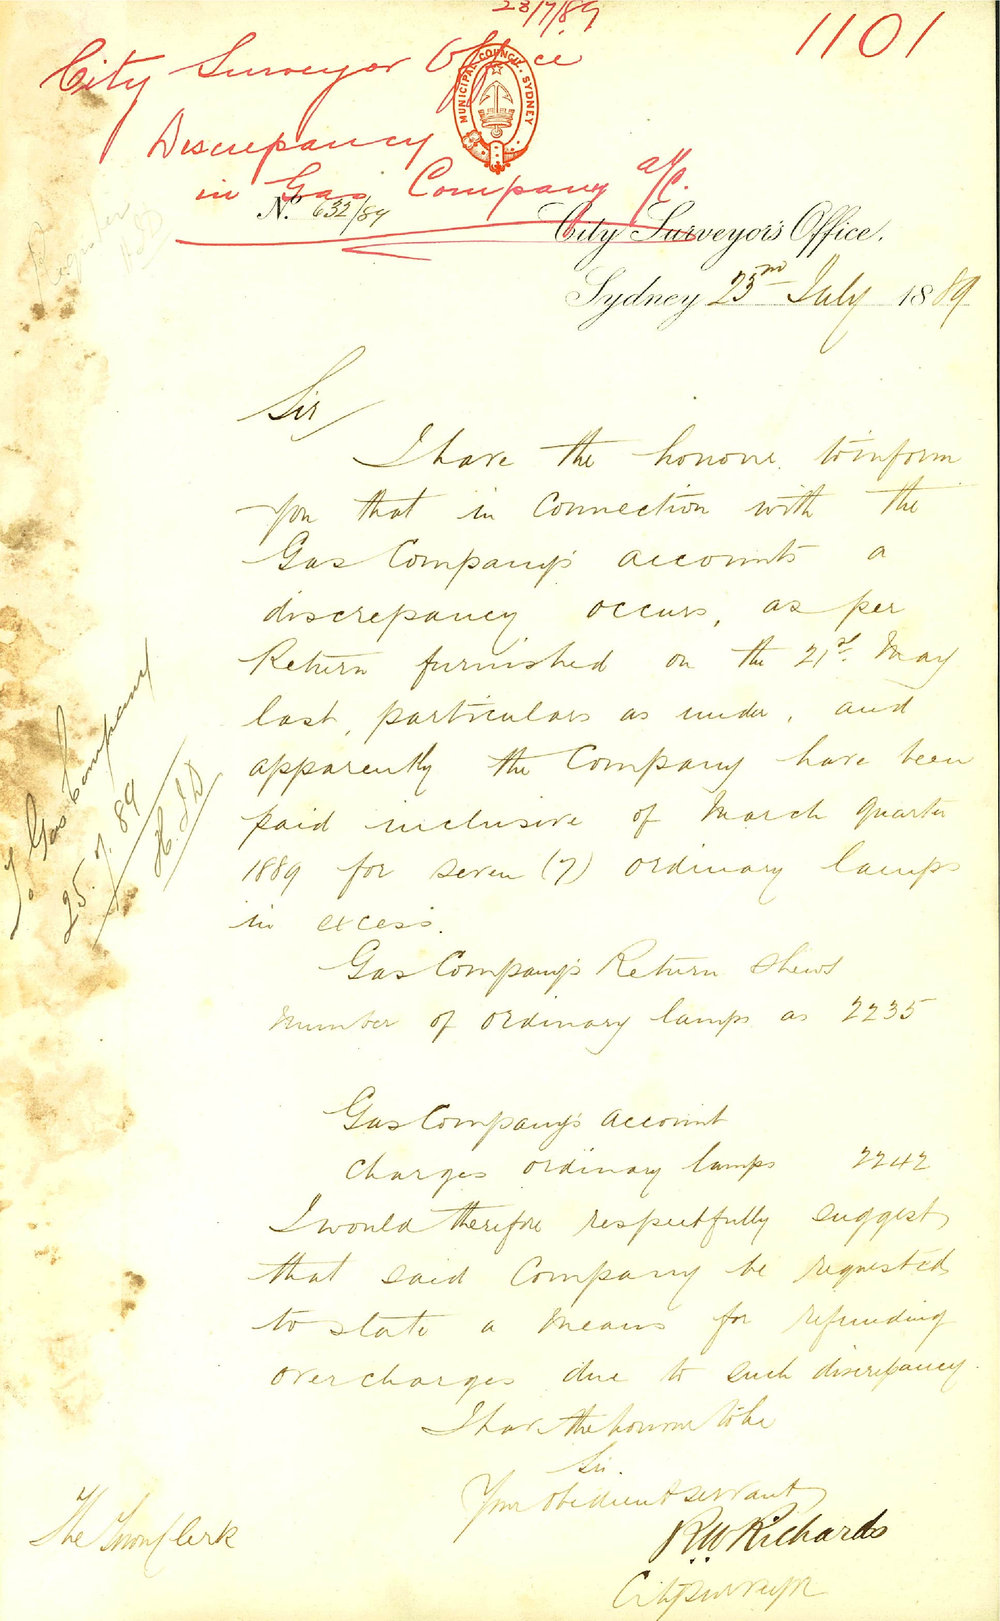 23/7/89
1101
City Surveyor Office
MUNICIPAL COUNCIL. SYDNEY
Discrepancy
in Gas Company a/c.
No. 632/89
City Surveyor's Office.
Sydney 23rd July 1889
Sir
I have the honour to inform
you that in connection with the
Gas Company's accounts a
discrepancy occurs, as per
Return furnished on the 21st May
last, particulars as under, and
apparently the Company have been
paid inclusive of March quarter
1889 for seven (7) ordinary lamps
in excess.
Gas Company's Return shews
number of ordinary lamps as 2235
Gas Company's account
charges ordinary lamps 2242
I would therefore respectfully suggest
that said Company be requested
to state a means for refunding
overcharges due to such discrepancy.
I have the honour to be
Sir.
Your obedient servant
R W Richards
City Surveyor
The Town Clerk
To Gas Company
25.7.89
H.S.D